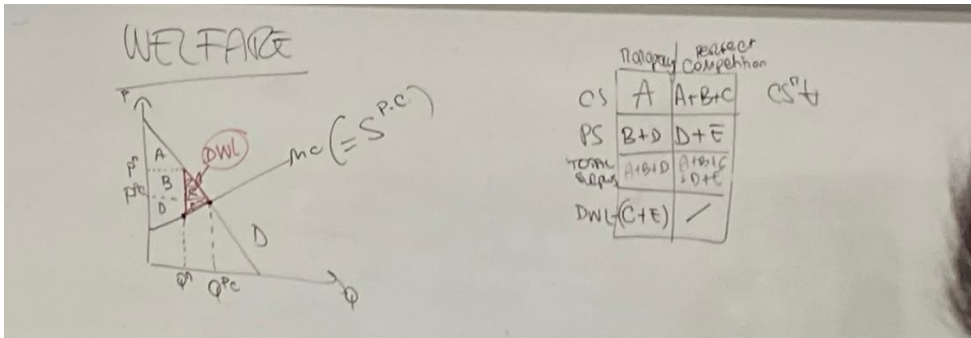 WELFARE
P
A
P^M
B
P^PC
D
DWL
MC (= S^P.C.)
D
Q^M
Q^PC
Q
Monopoly
Perfect
Competition
CS A A+B+C
PS B+D D+E
TOTAL Surplus A+B+D A+B+C+D+E
DWL -(C+E) /